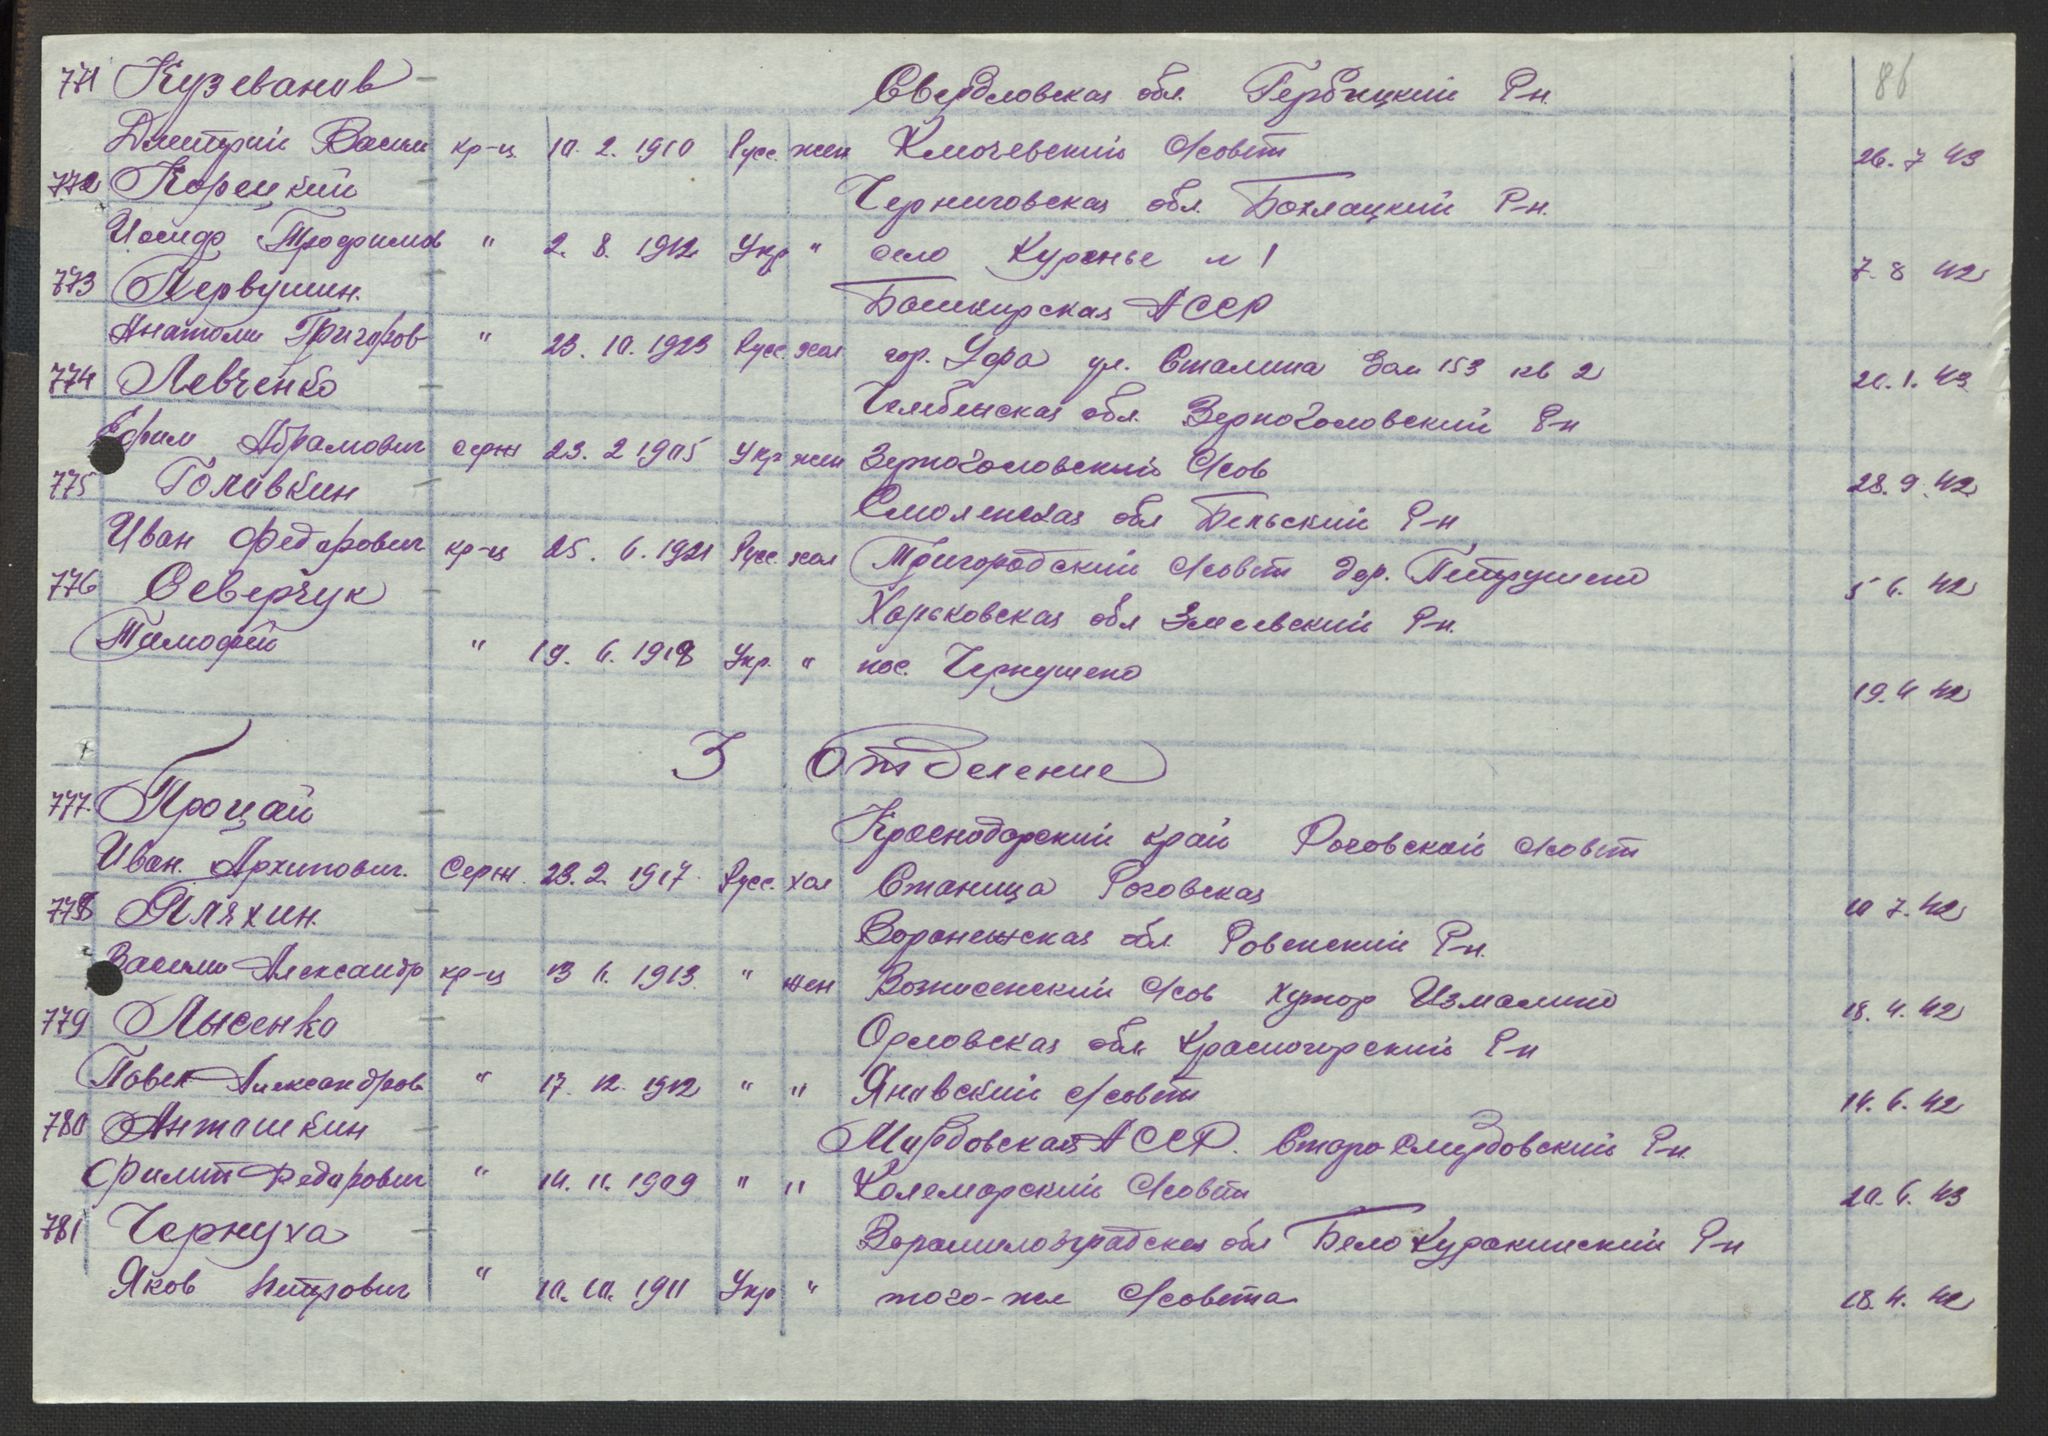 86
771 Кузеванов Свердловская обл. Гербицкий Р-н.
Дмитрий Васили кр-ц. 10. 2. 1910 Русс. жен Ключевский с/совет 26. 7 43
772 Корецкий Черниговская обл. Бахмацкий Р-н.
Иосиф Трофимов " 2. 8. 1912 Укр " село Куренье № 1 7. 8 42
773 Первушин. Башкирская АССР
Анатоли Григоров " 23. 10. 1923 Русс. хол гор. Уфа ул. Сталина дом 153 кв 2 20. 1. 43
774 Левченко Челябенская обл. Зерноголовский Р-н
Ефрем Абрамович серж 23. 2 1905 Укр жен Зерноголовский с/сов 28. 9. 42
775 Головкин Смоленская обл Бельский Р-н
Иван Федорович кр-ц 25. 6. 1921 Русс. хол Пригородский с/совет дер. Петрушено 5 6. 42
776 Северчук Харьковская обл Змеевский Р-н.
Тимофей " 19. 6. 1918 Укр. " пос. Чернушено 19. 4 42
3 отделение
777. Процай Краснодарский край Роговской с/совет
Иван. Архипович. Серж. 23. 2. 1917. Русс. хол Станица Роговская 10 7. 42
778 Пляхин. Воронежская обл Ровенский Р-н.
Васили Александр кр-ц 13 6. 1913. " жен Вознесенский с/сов хутор Измалино 18. 4. 42
779 Лысенко Орловская обл. Красногорский Р-н
Павел Александров " 17. 12. 1912 " " Яновский с/совет 14. 6. 42
780 Анташкин Мардовская АССР. Старо Синдровский Р-н.
Филип Федорович " 14. 11. 1909 " " Колемарский с/совет 20. 6. 43
781 Чернуха Ворошиловградская обл Бело Куракинский Р-н
Яков Петрович " 10. 10. 1911 Укр " того-же с/совета 18. 4. 42